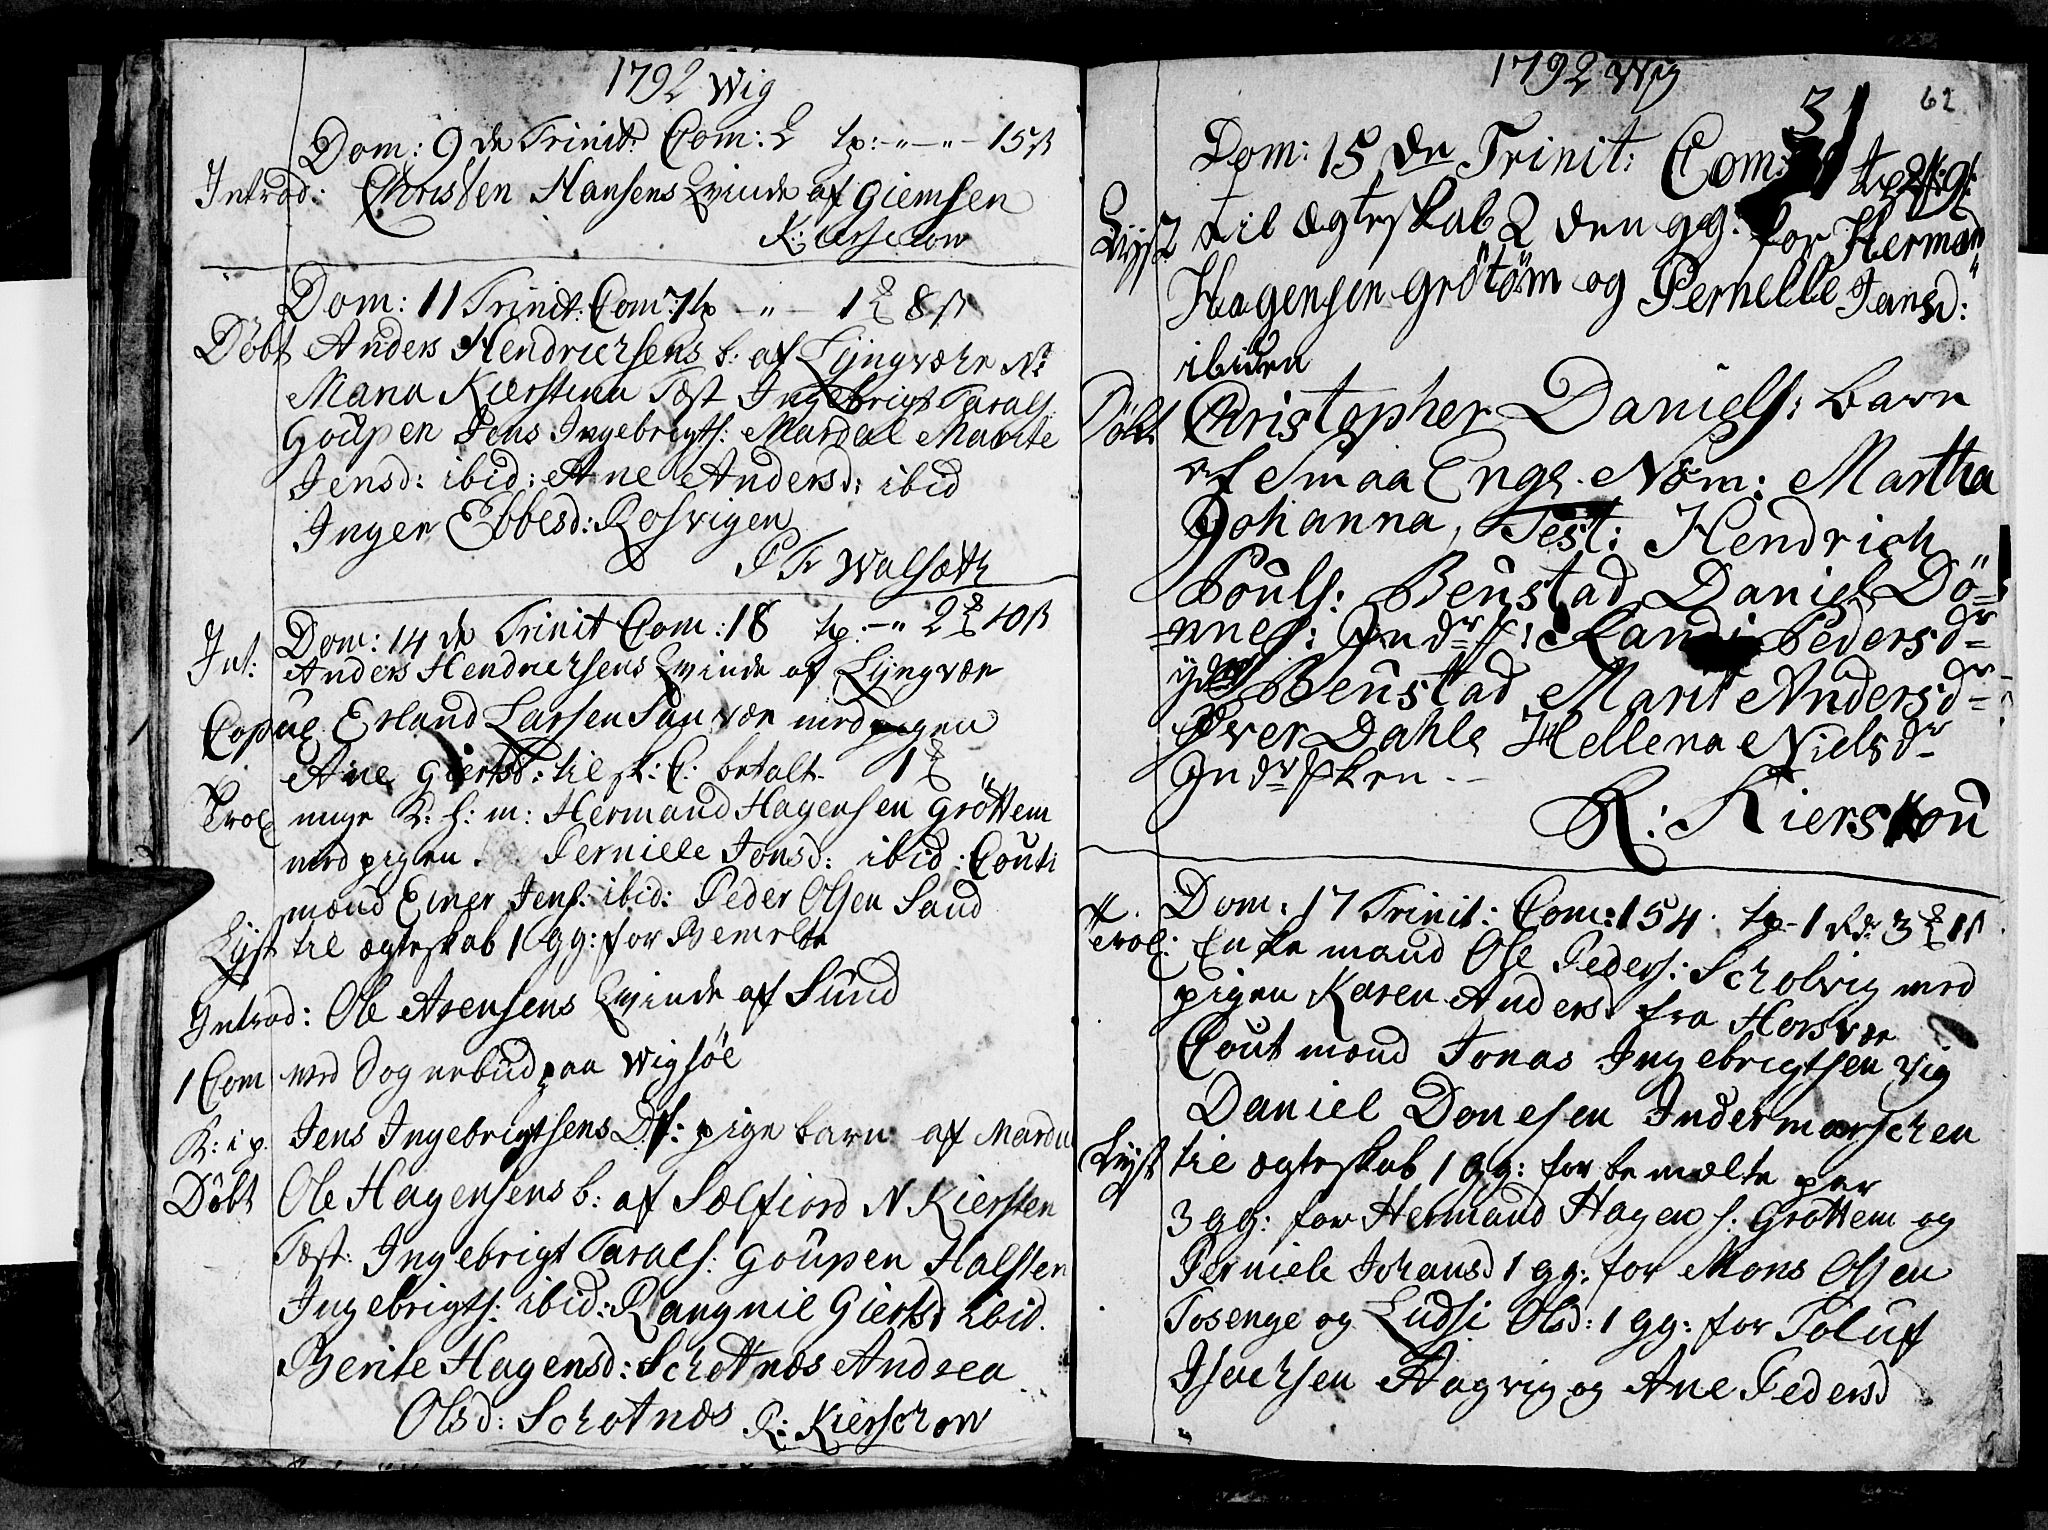 1792 Wig
Dom: 9 de Trinit: Com: 2 tp: - " - " - 15 ß
Introd: Christen Hansens Qvinde af Giemsen
K: Kierschow
Dom: 11 Trinit: Com: 1 tp - " - 1 8 ß
Döbt Anders Hendrichsens b: af Lyngvær N:
Mana Kierstina Test Ingebrigt Tarals:
Goupen Jens Ingebrigts: Mardal Marite
Jensd: ibid: Ane Andersd: ibid
Inger Ebbesd: Rosvigen
P Fr Walsøth
Dom: 14 de Trinit Com: 18 tp: - " 2 10 ß
Int: Anders Hendrichsens Qvinde af Lyngvær
Copul Erland Larsen Sanvær med pigen
Ane Giertsd: til sk: C: betalt 1
Trol unge K: h: m: Hermand Hagensen Gröttem
med pigen Pernille Jonsd: ibid: Couti
mænd Einer Jens: ibid: Peder Olsen Sand
Lyst til ægteskab 1 gg: for Bemelte
Introd: Ole Arensens Qvinde af Sund
1 Com med Sognebud paa Wigsöe
K: i p. Jens Ingebrigtsens pige barn af Mardal
Döbt Ole Hagensens b: af Sælfiord N Kiersten
Test: Ingebrigt Tarals: Goupen Halsten
Ingebrigts: ibid: Rangnil Giertsd ibid.
Berite Hagensd: Schottnæs Andrea
Olsd: Schotnæs R: Kierschow
1792 Wig
62
31
Dom: 15 de Trinit: Com: tp
Lyst til ægteskab 2 den gg: for Herman
Hagensen Grötöm og Pernelle Jansd:
ibiden
Döbt Christopher Daniels: barn
af Smaa Enge. Nom: Martha
Johanna, Test: Hendrich
Pouls: Beustad Daniel Dö=
=nnes: Indr f: Randi Pedersdr
Beustad Marit Andersdr
Över Dahle Hellena Nielsdr
Indrsken
R: Kierskou
Dom: 17 Trinit: Com: 154. tp - 1 Rd: 3 11
Trol: Enke mand Ole Peders: Scholvig med
pigen Karen Andersd fra Horsvær
Cout mænd Jonas Ingebrigtsen Vig
Daniel Donesen Indermarschen
Lyst til ægteskab 1 gg: for be mælte par
3 gg: for Hermand Hagens: Gröttem og
Perniele Johansd 1 gg: for Mons Olsen
Tosenge og Ludsi Olsd: 1 gg: for Toluf
Isachsen Aagvig og Ane Pedersd